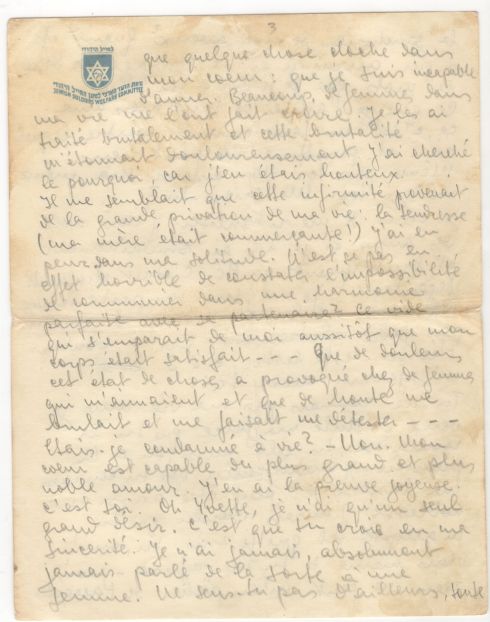 3
למייל היהודי
JEWISH SOLDIERS WELFARE COMMITTEE
que quelque chose cloche dans
mon coeur : que je suis incapable
d'aimer. Beaucoup de femmes dans
ma vie me l'ont fait croire. Je les ai
traité brutalement et cette brutalité
m'étonnait douloureusement. J'ai cherché
le pourquoi, car j'en étais honteux.
Il me semblait que cette infirmité provenait
de la grande privation de ma vie : la tendresse
(ma mère était commerçante !) j'ai eu
peur dans ma solitude. N'est-ce pas en
effet horrible de constater l'impossibilité
de communier dans une harmonie
parfaite avec sa partenaire ? Ce vide
qui s'emparait de moi aussitôt que mon
corps était satisfait --- Que de douleurs
cet état de choses a provoqué chez des femmes
qui m'aimaient et que de honte me
brulait et me faisait me détester ---
Etais-je condamné à vie ? - Non. Mon
coeur est capable du plus grand et plus
noble amour. J'en ai la preuve joyeuse.
c'est toi. Oh Yvette, je n'ai qu'un seul
grand désir. C'est que tu crois en ma
sincerité. Je n'ai jamais, absolument
jamais parlé de la sorte à une
femme. Ne sens-tu pas d'ailleurs, toute